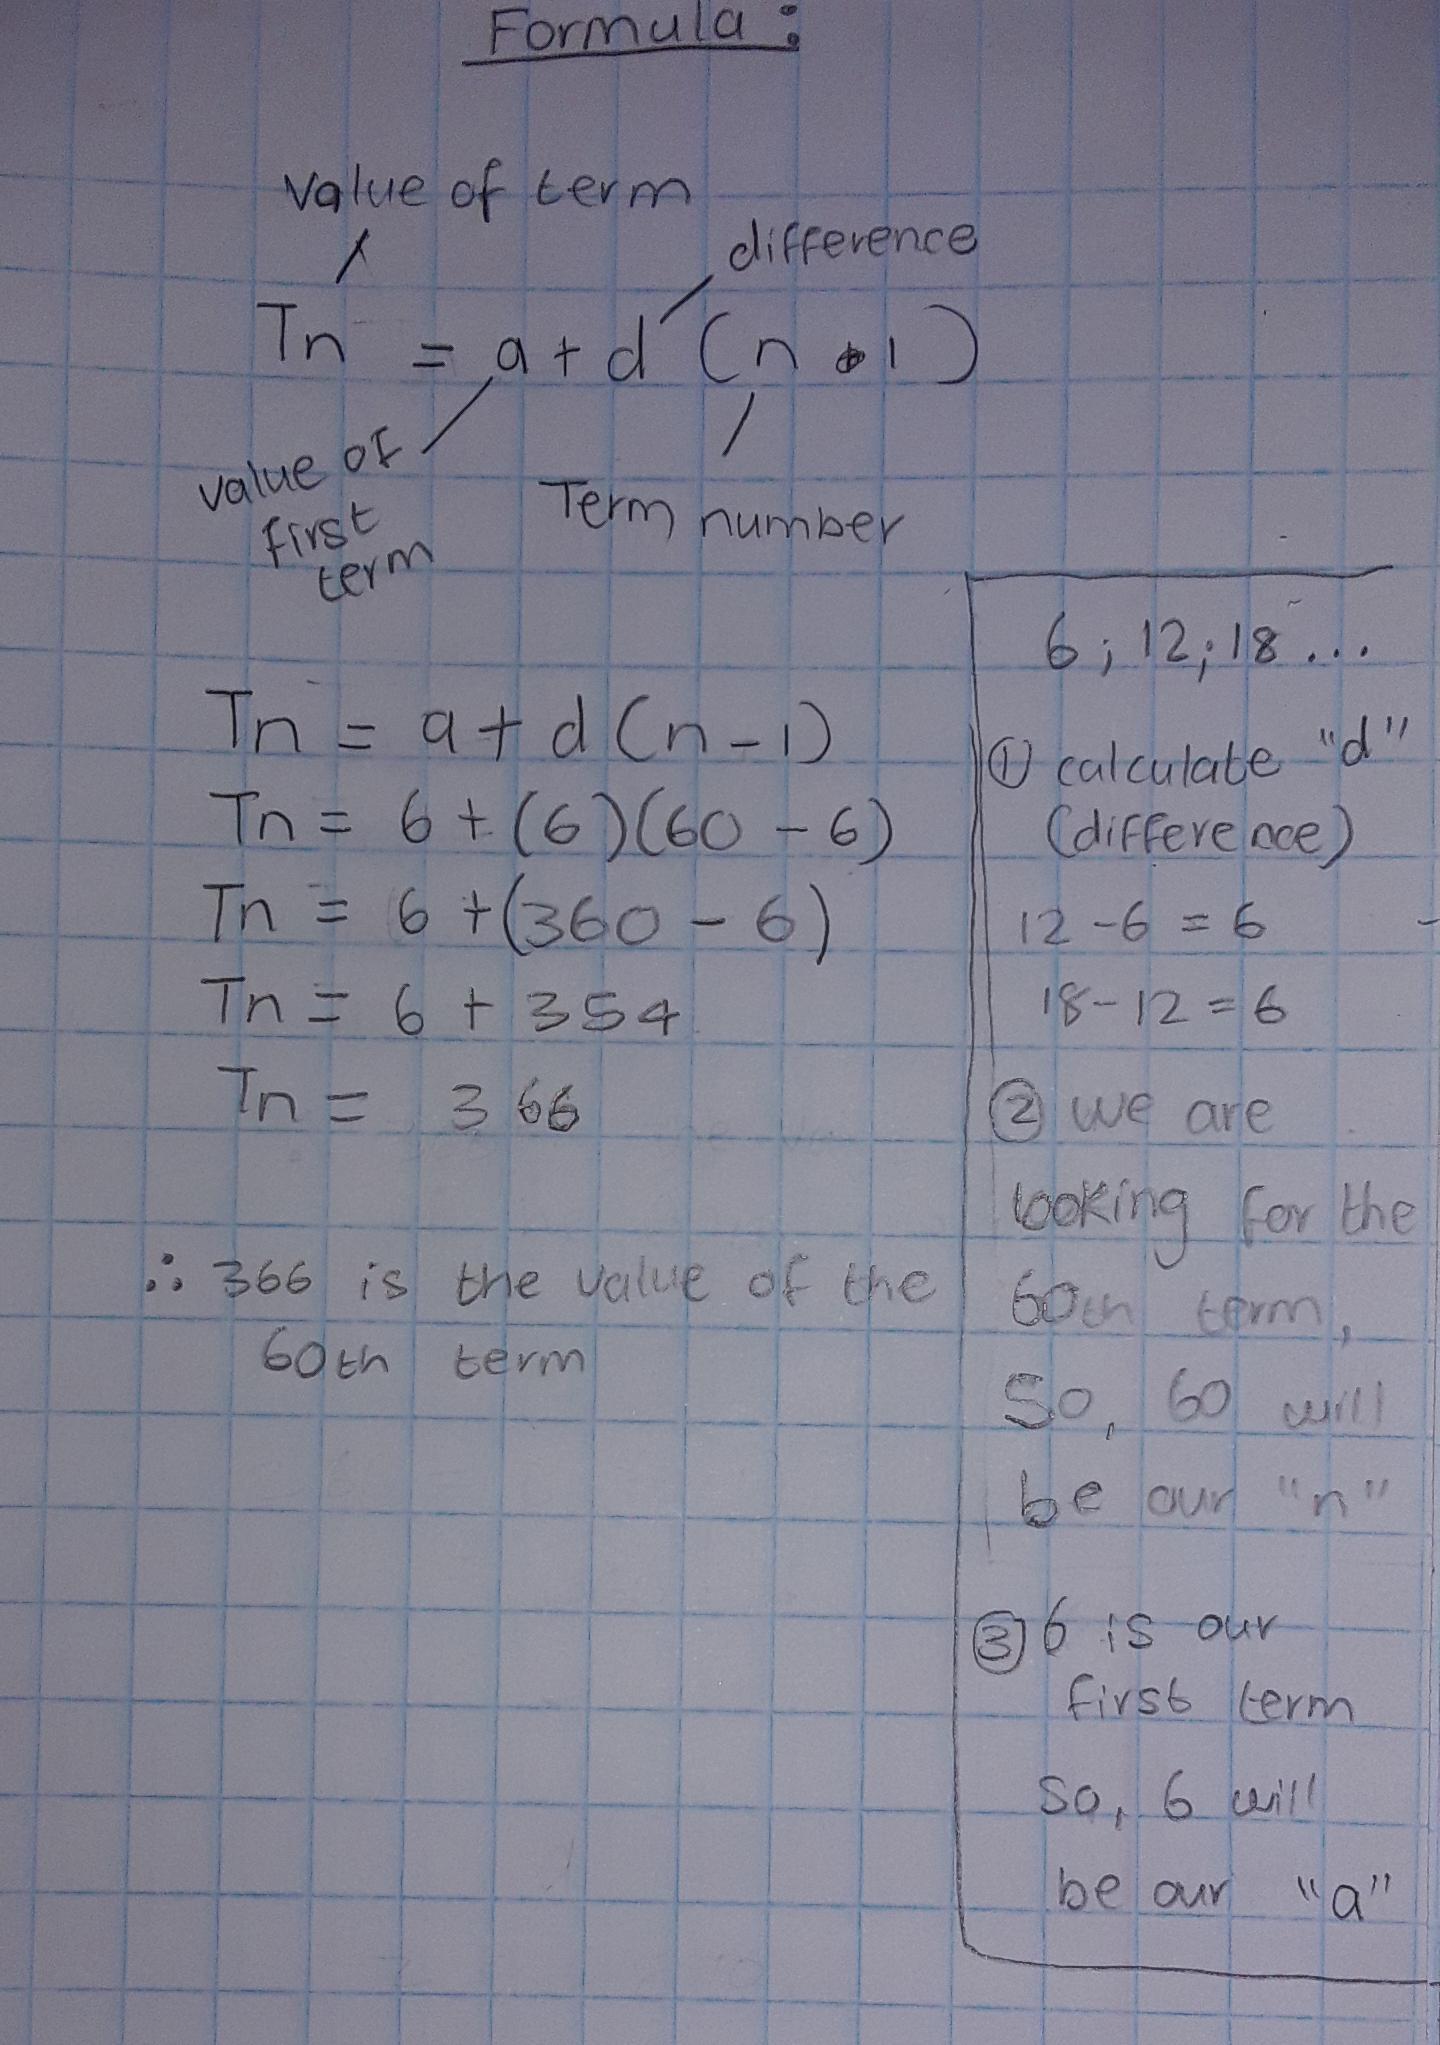 Formula :
value of term
difference
Tn = a + d (n - 1)
value of
first
term
Term number
Tn = a + d (n - 1)
Tn = 6 + (6)(60 - 6)
Tn = 6 + (360 - 6)
Tn = 6 + 354
Tn = 366
∴ 366 is the value of the
60th term
6; 12; 18 ...
① calculate "d"
(difference)
12 - 6 = 6
18 - 12 = 6
② we are
looking for the
60th term,
So, 60 will
be our "n"
③ 6 is our
first term
so, 6 will
be our "a"